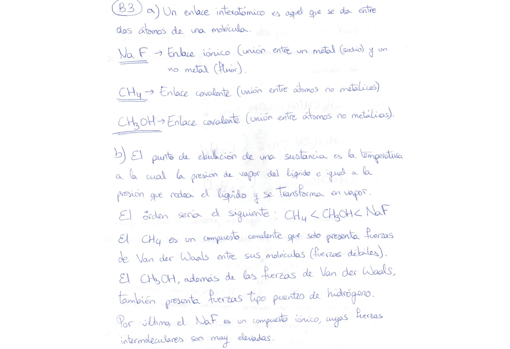 B3) a) Un enlace interatómico es aquel que se da entre
dos átomos de una molécula.
Na F → Enlace iónico (unión entre un metal (sodio) y un
no metal (flúor).
CH4 → Enlace covalente (unión entre átomos no metálicos)
CH3OH → Enlace covalente (unión entre átomos no metálicos).
b) El punto de ebullición de una sustancia es la temperatura
a la cual la presión de vapor del líquido e igual a la
presión que rodea el líquido y se transforma en vapor.
El orden sería el siguiente: CH4 < CH3OH < NaF
El CH4 es un compuesto covalente que solo presenta fuerzas
de Van der Waals entre sus moléculas (fuerzas débiles).
El CH3OH, además de las fuerzas de Van der Waals,
también presenta fuerzas tipo puentes de hidrógeno.
Por último el NaF es un compuesto iónico, cuyas fuerzas
intermoleculares son muy elevadas.